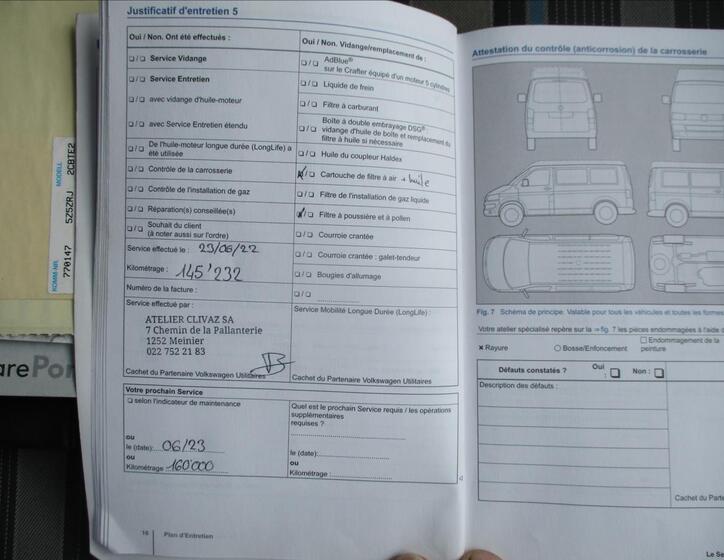 Justificatif d'entretien 5
Oui / Non. Ont été effectués :
❏/❏ Service Vidange
❏/❏ Service Entretien
❏/❏ avec vidange d'huile-moteur
❏/❏ avec Service Entretien étendu
❏/❏ De l'huile-moteur longue durée (LongLife) a
été utilisée
❏/❏ Contrôle de la carrosserie
❏/❏ Contrôle de l'installation de gaz
❏/❏ Réparation(s) conseillée(s)
❏/❏ Souhait du client
(à noter aussi sur l'ordre)
Service effectué le : 23/06/22
Kilométrage : 145'232
Numéro de la facture :
Service effectué par :
ATELIER CLIVAZ SA
7 Chemin de la Pallanterie
1252 Meinier
022 752 21 83
Cachet du Partenaire Volkswagen Utilitaires
Oui / Non. Vidange/remplacement de :
❏/❏ AdBlue®
sur le Crafter équipé d'un moteur 5 cylindres
❏/❏ Liquide de frein
❏/❏ Filtre à carburant
❏/❏ Boîte à double embrayage DSG® :
vidange d'huile de boîte et remplacement du
filtre à huile si nécessaire
❏/❏ Huile du coupleur Haldex
❏/❏ Cartouche de filtre à air + huile
❏/❏ Filtre de l'installation de gaz liquide
❏/❏ Filtre à poussière et à pollen
❏/❏ Courroie crantée
❏/❏ Courroie crantée : galet-tendeur
❏/❏ Bougies d'allumage
❏/❏
Service Mobilité Longue Durée (LongLife) :
Cachet du Partenaire Volkswagen Utilitaires
Votre prochain Service
❏ selon l'indicateur de maintenance
ou
le (date): 06/23
ou
Kilométrage : 160'000
Quel est le prochain Service requis / les opérations
supplémentaires
requises ?
le (date):
ou
Kilométrage :
16 Plan d'Entretien
Attestation du contrôle (anticorrosion) de la carrosserie
Fig. 7 Schéma de principe. Valable pour tous les véhicules et toutes les formes
Votre atelier spécialisé repère sur la ⇒ fig. 7 les pièces endommagées à l'aide
✖ Rayure
○ Bosse/Enfoncement
❏ Endommagement de la
peinture
Défauts constatés ?
Oui : ❏
Non : ❏
Description des défauts :
Cachet du Parte
Le Se
KOMM-NR. MODELL
770147 5Z5ZRJ 2CBTE2
are Por